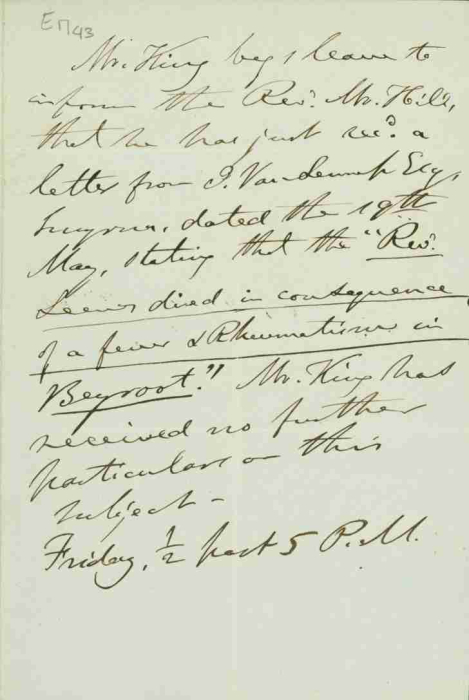 ΕΠ43
Mr. King begs leave to
inform the Rev.d Mr. Hill,
that he has just rec.d a
letter from J. Vanlennep Esq,
Smyrna, dated the 19th
May, stating that the "Rev.d
Leeves died in consequence
of a fever & Rheumatism in
Beyroot." Mr. King has
received no further
particulars on this
subject -
Friday, 1/2 past 5 P.M.